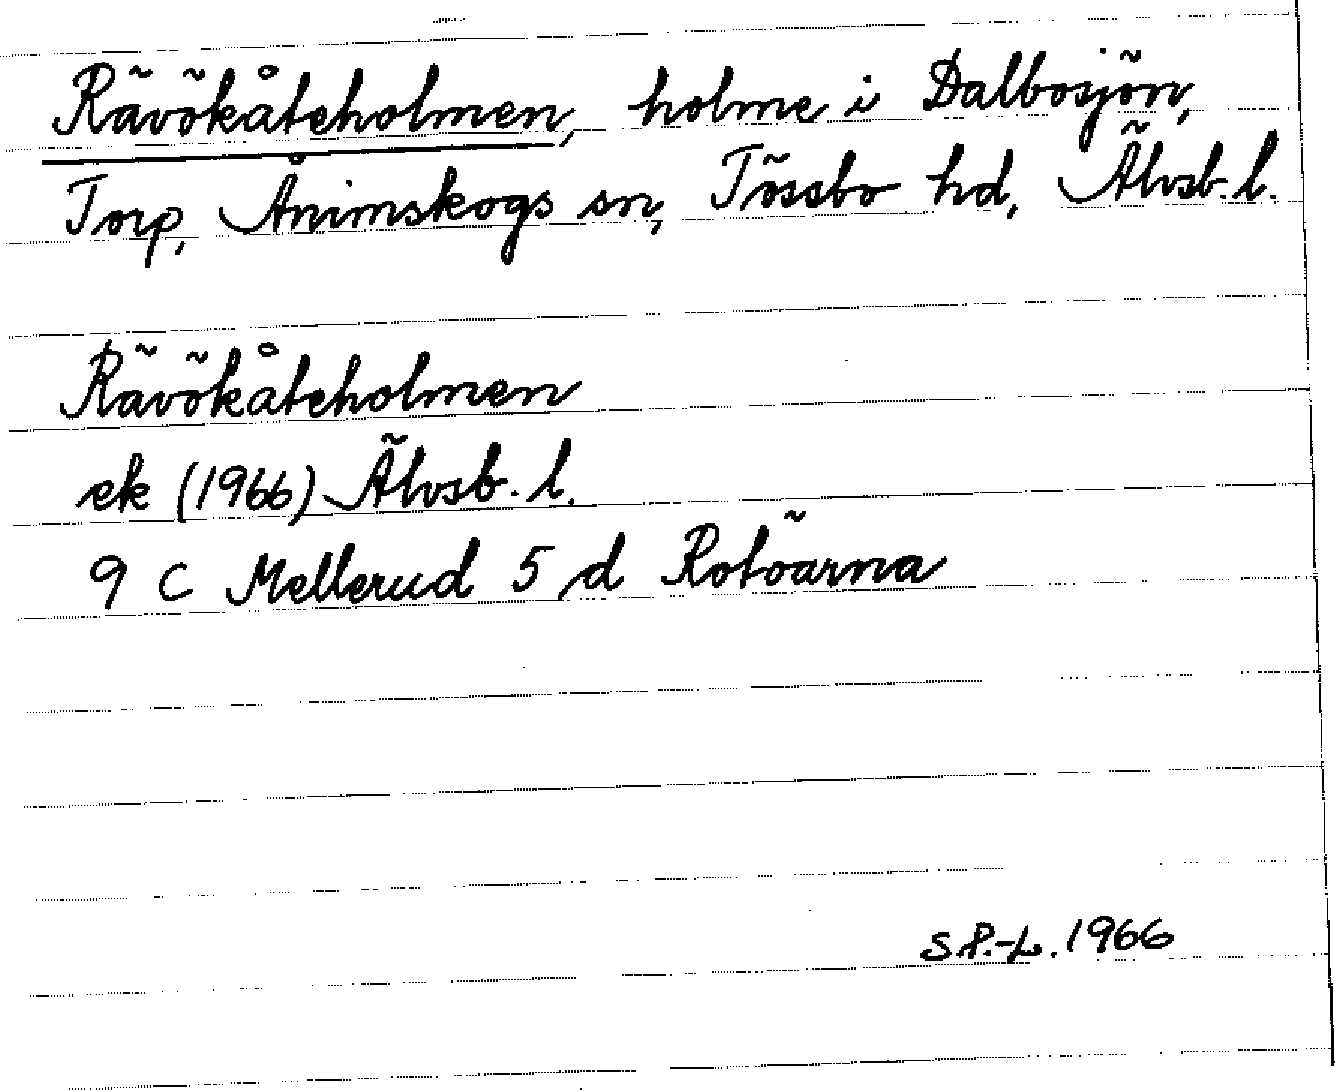 Rävökåteholmen, holme i Dalbosjön,
Torp, Ånimskogs sn, Tössbo hd, Älvsb. l.
Rävökåteholmen
ek (1966) Älvsb. l.
9 C Mellerud 5 d Rotöarna
S.P.-L. 1966